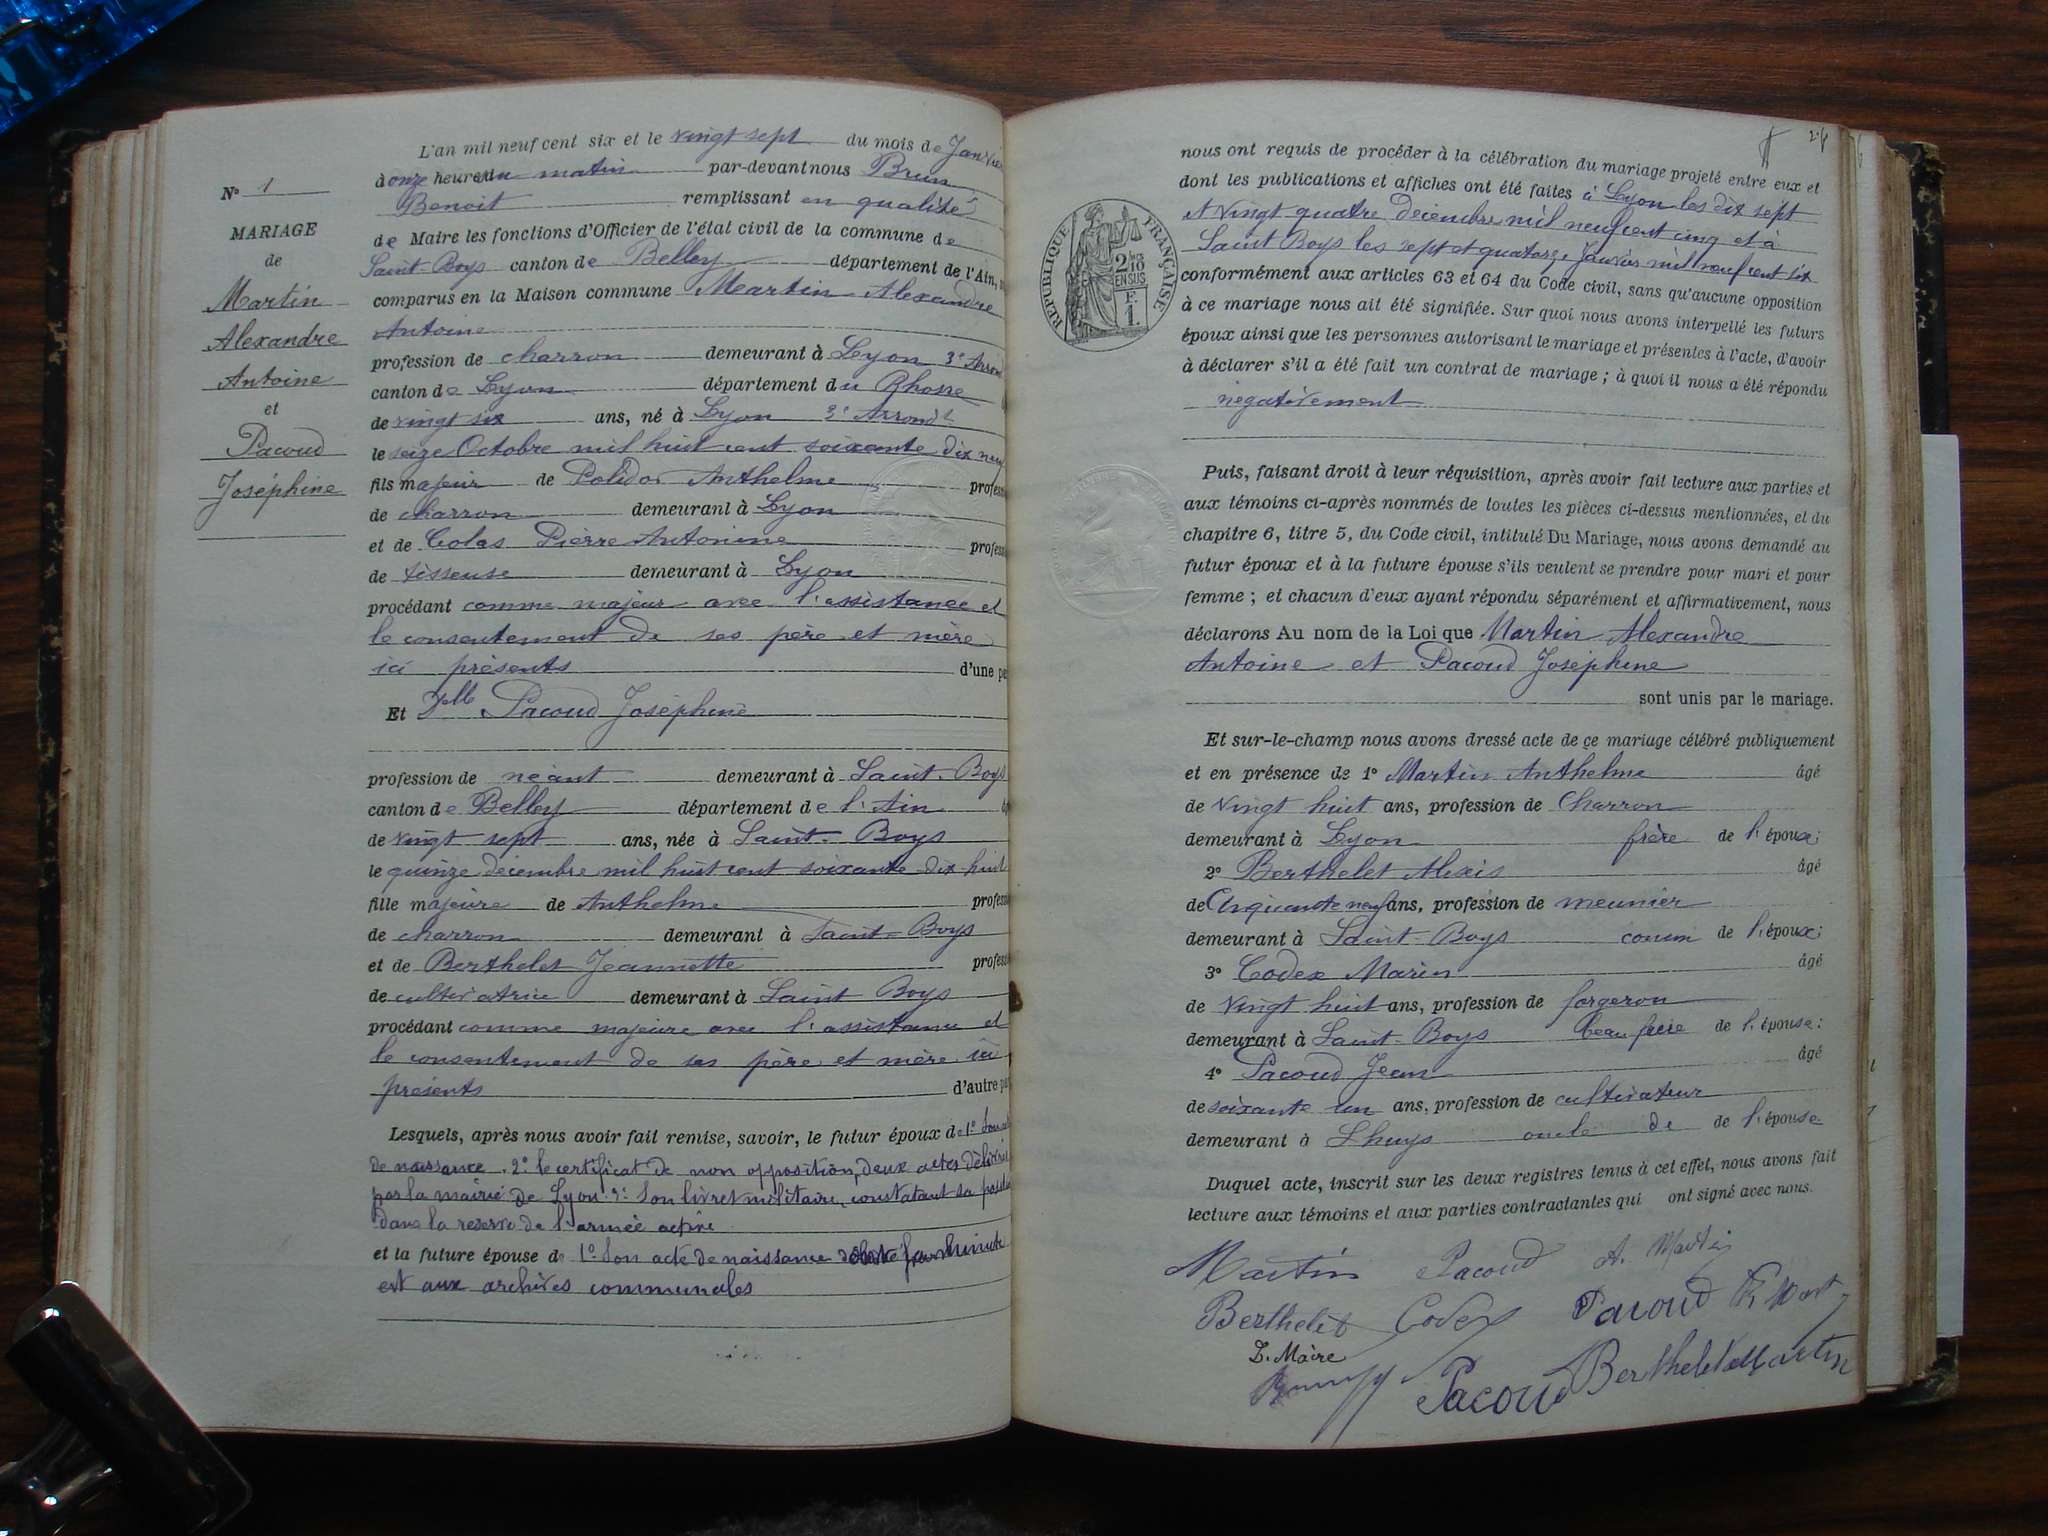 L'an mil neuf cent six et le vingt sept du mois de Janvier
à onze heures du matin par-devant nous Brun
Benoit remplissant en qualité
de Maire les fonctions d'Officier de l'état civil de la commune de
Saint-Boys canton de Belley département de l'Ain,
comparus en la Maison commune Martin Alexandre
Antoine
profession de charron demeurant à Lyon 3e Arron
canton de Lyon département du Rhône
de vingt six ans, né à Lyon 3e Arrondt
le seize Octobre mil huit cent soixante dix neuf
fils majeur de Polidor Anthelme profess
de charron demeurant à Lyon
et de Colas Pierre Antonine profess
de tisseuse demeurant à Lyon
procédant comme majeur avec l'assistance et
le consentement de ses père et mère
ici présents d'une pa
Et Mlle Pacoud Joséphine
profession de néant demeurant à Saint-Boys
canton de Belley département de l'Ain
de vingt sept ans, née à Saint-Boys
le quinze décembre mil huit cent soixante dix-huit
fille majeure de Anthelme profess
de charron demeurant à Saint-Boys
et de Berthelet Jeannette profess
de cultivatrice demeurant à Saint Boys
procédant comme majeure avec l'assistance et
le consentement de ses père et mère ici
présents d'autre pa
Lesquels, après nous avoir fait remise, savoir, le futur époux de 1° Son
de naissance. 2° le certificat de non opposition, deux actes délivrés
par la mairie de Lyon 3° Son livret militaire, constatant sa posit
dans la réserve de l'armée active
et la future épouse de 1° Son acte de naissance dont la minute
est aux archives communales
N° 1
MARIAGE
de
Martin
Alexandre
Antoine
et
Pacoud
Joséphine
26
nous ont requis de procéder à la célébration du mariage projeté entre eux et
dont les publications et affiches ont été faites à Lyon les dix sept
et vingt quatre Décembre mil neuf cent cinq et à
Saint Boys les sept et quatorze Janvier mil neuf cent six
conformément aux articles 63 et 64 du Code civil, sans qu'aucune opposition
à ce mariage nous ait été signifiée. Sur quoi nous avons interpellé les futurs
époux ainsi que les personnes autorisant le mariage et présentes à l'acte, d'avoir
à déclarer s'il a été fait un contrat de mariage ; à quoi il nous a été répondu
négativement
RÉPUBLIQUE FRANÇAISE
2/10
EN SUS
F.
1.
Puis, faisant droit à leur réquisition, après avoir fait lecture aux parties et
aux témoins ci-après nommés de toutes les pièces ci-dessus mentionnées, et du
chapitre 6, titre 5, du Code civil, intitulé Du Mariage, nous avons demandé au
futur époux et à la future épouse s'ils veulent se prendre pour mari et pour
femme ; et chacun d'eux ayant répondu séparément et affirmativement, nous
déclarons Au nom de la Loi que Martin Alexandre
Antoine et Pacoud Joséphine
sont unis par le mariage.
Et sur-le-champ nous avons dressé acte de ce mariage célébré publiquement
et en présence de 1° Martin Anthelme âgé
de Vingt huit ans, profession de charron
demeurant à Lyon frère de l'époux;
2° Berthelet Alexis âgé
de Cinquante neuf ans, profession de meunier
demeurant à Saint-Boys cousin de l'époux;
3° Codex Marin âgé
de Vingt huit ans, profession de forgeron
demeurant à Saint-Boys beau frère de l'épouse;
4° Pacoud Jean âgé
de soixante un ans, profession de cultivateur
demeurant à Lhuys oncle de de l'épouse
Duquel acte, inscrit sur les deux registres tenus à cet effet, nous avons fait
lecture aux témoins et aux parties contractantes qui ont signé avec nous.
Martin Pacoud A. Martin
Berthelet Codex Pacoud
L. Maire
Pacoud Berthelet Martin